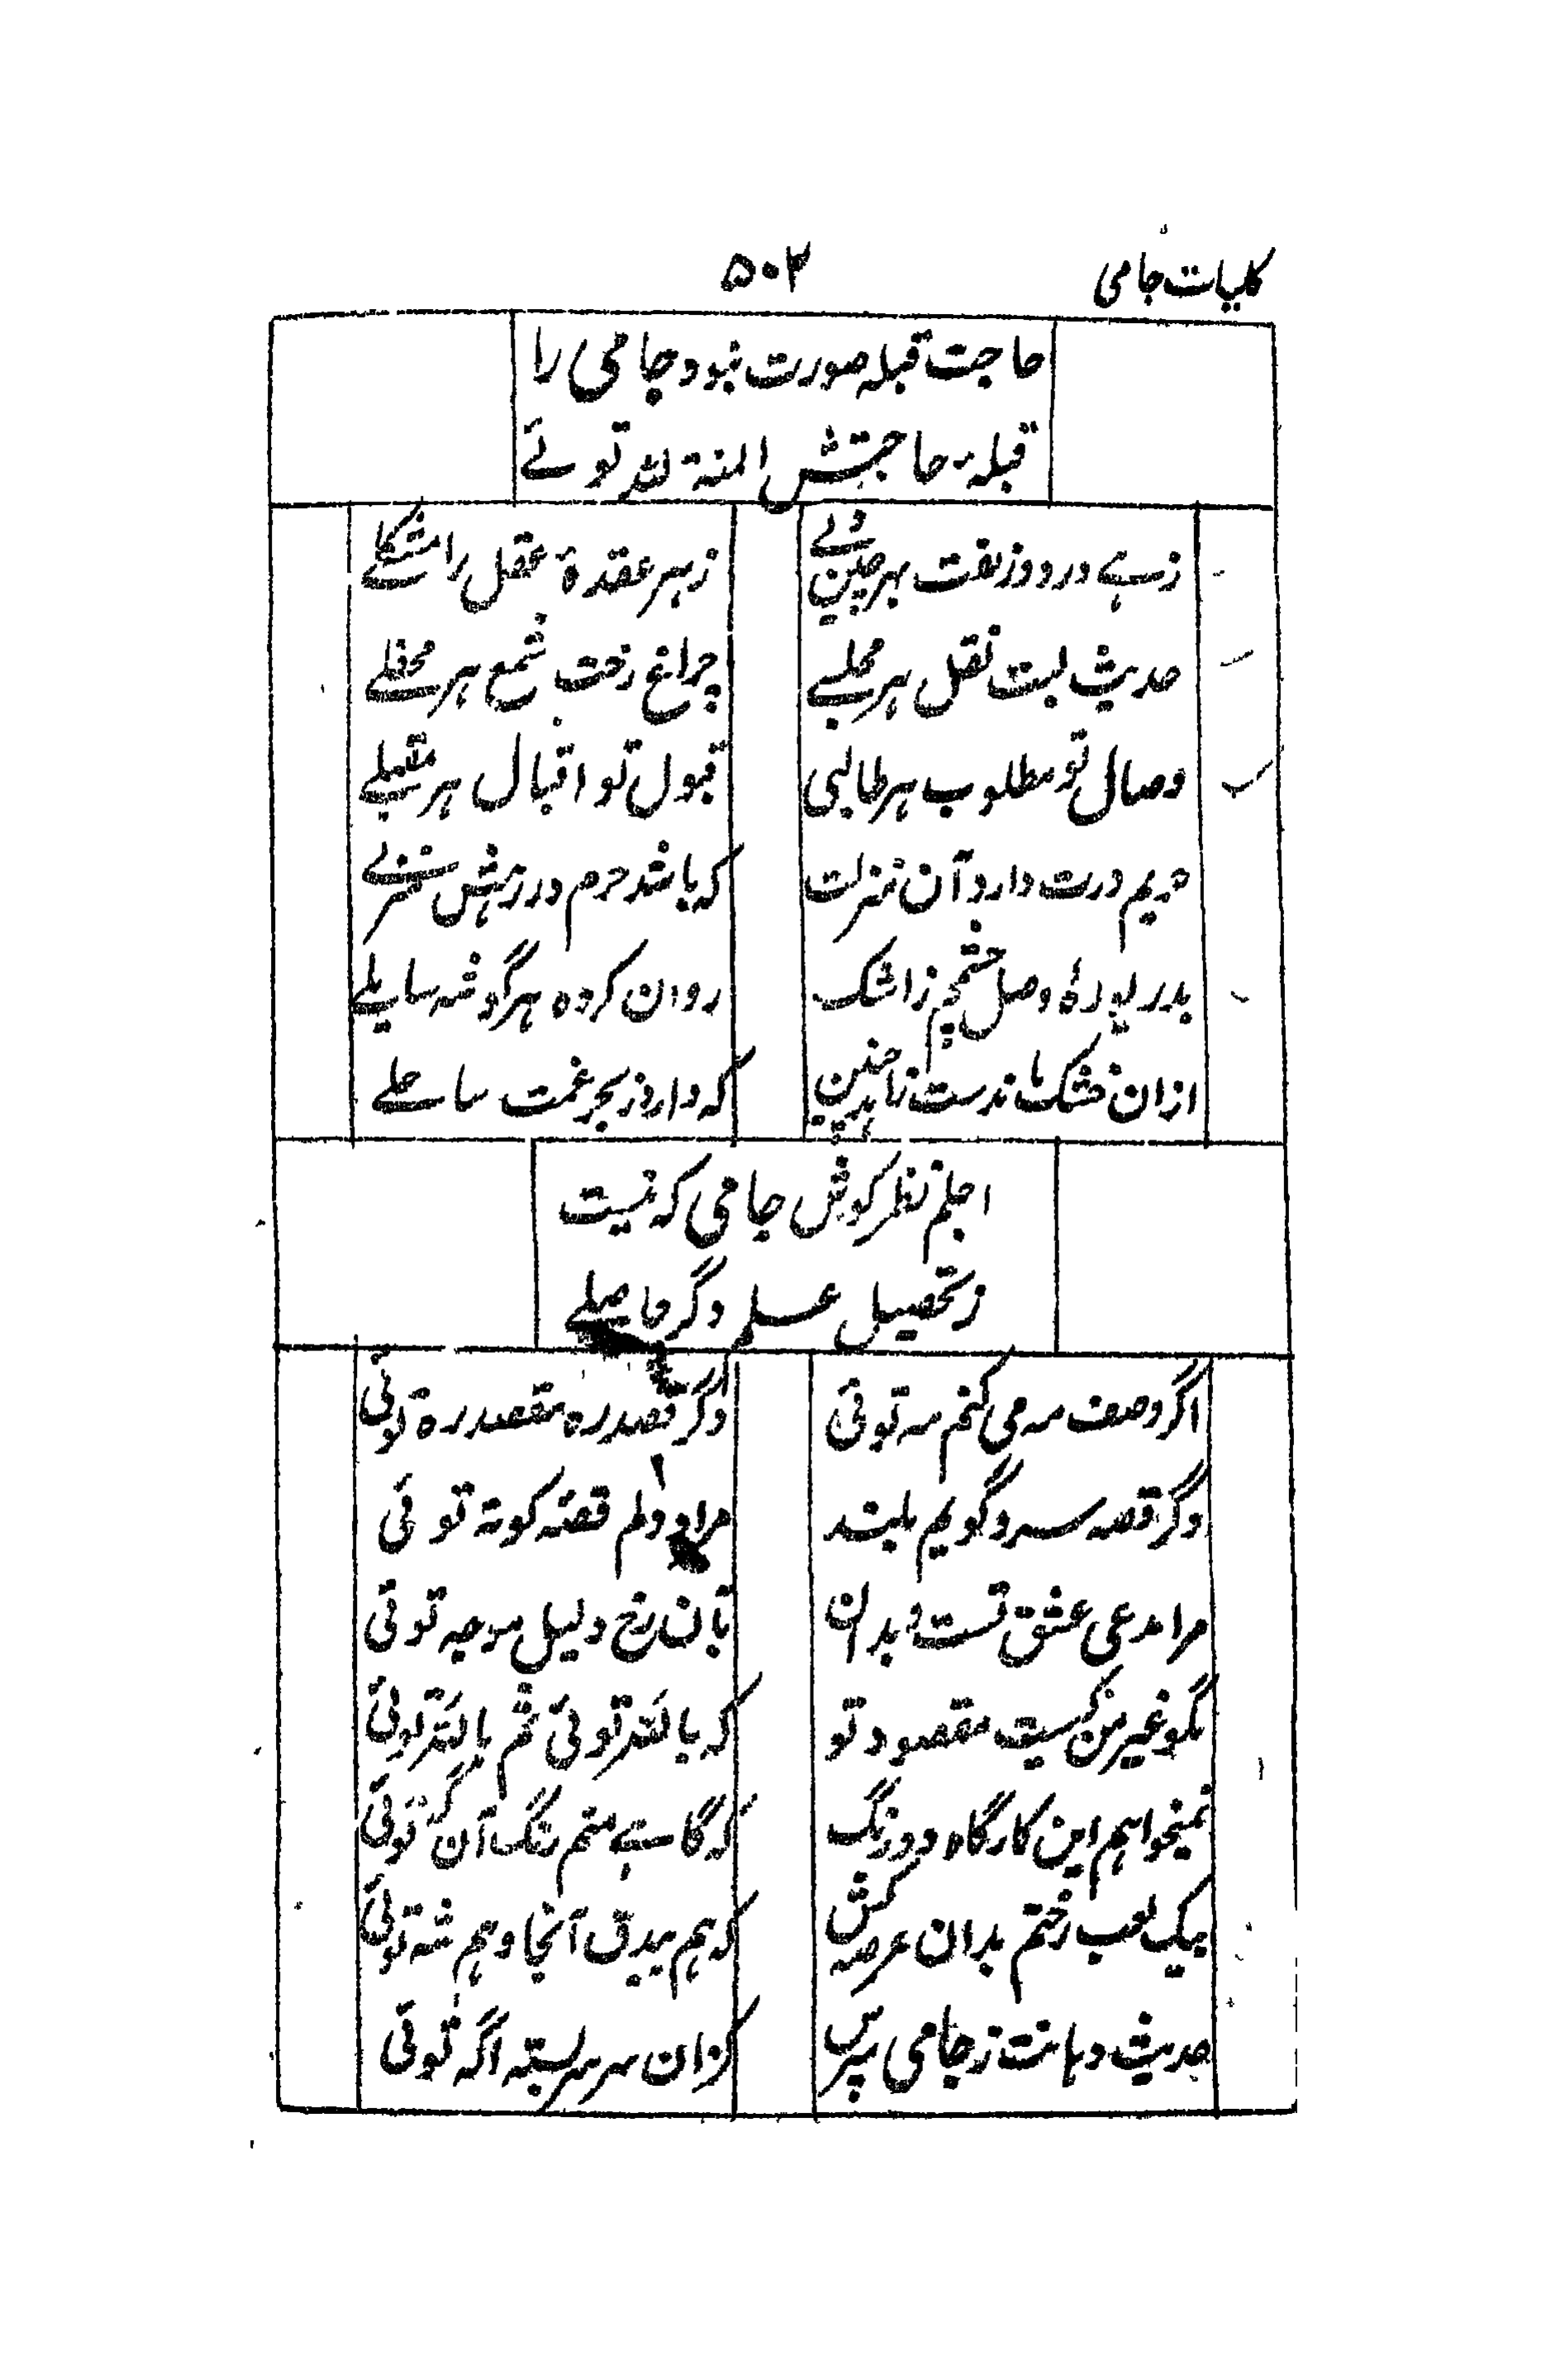 کلیات جامی
۵۰۲
حاجت قبله صورت نبود جامی را
قبلهٔ حاجتش المنة لله توئے
زہے در دو زلفت بهر چین دلے
زهر عقدهٔ عقل را مشکلے
حدیث لبت نقل هر مجلسے
چراغ رخت شمع هر محفلے
وصال تو مطلوب هر طالبی
قبول تو اقبال هر مقبلے
حریم درت دارد آن منزلت
که باشد حرم در رهش منزلے
بدریوزهٔ وصل چشمم ز اشک
روان کرده هر گوشه سایلے
ازان خشک ماندست زاهد چنین
که دارد ز بحر غمت ساحلے
اجلم نظر کو مثل جامی که نیست
ز تحصیل علم دگر حاصلے
اگر وصف مه می کنم مه توئی
وگر قصد ره مقصد ره توئی
وگر قصه سرو گویم بلند
مراد دلم قصه کوته توئی
مرا مدعی عشق تست و بدان
تابان رخ دلیل موجه توئی
بگو غیر من کیست مقصود تو
که بالله توئی ثم بالله توئی
نمیخواهم این کارگاه دو رنگ
که گاہے منم رنگ آن گه توئی
بیک لعب رختم بدان عرصه کش
که هم بیدق آنجا و هم شه توئی
حدیث دهانت ز جامی مپرس
کزان سر سربسته آگه توئی